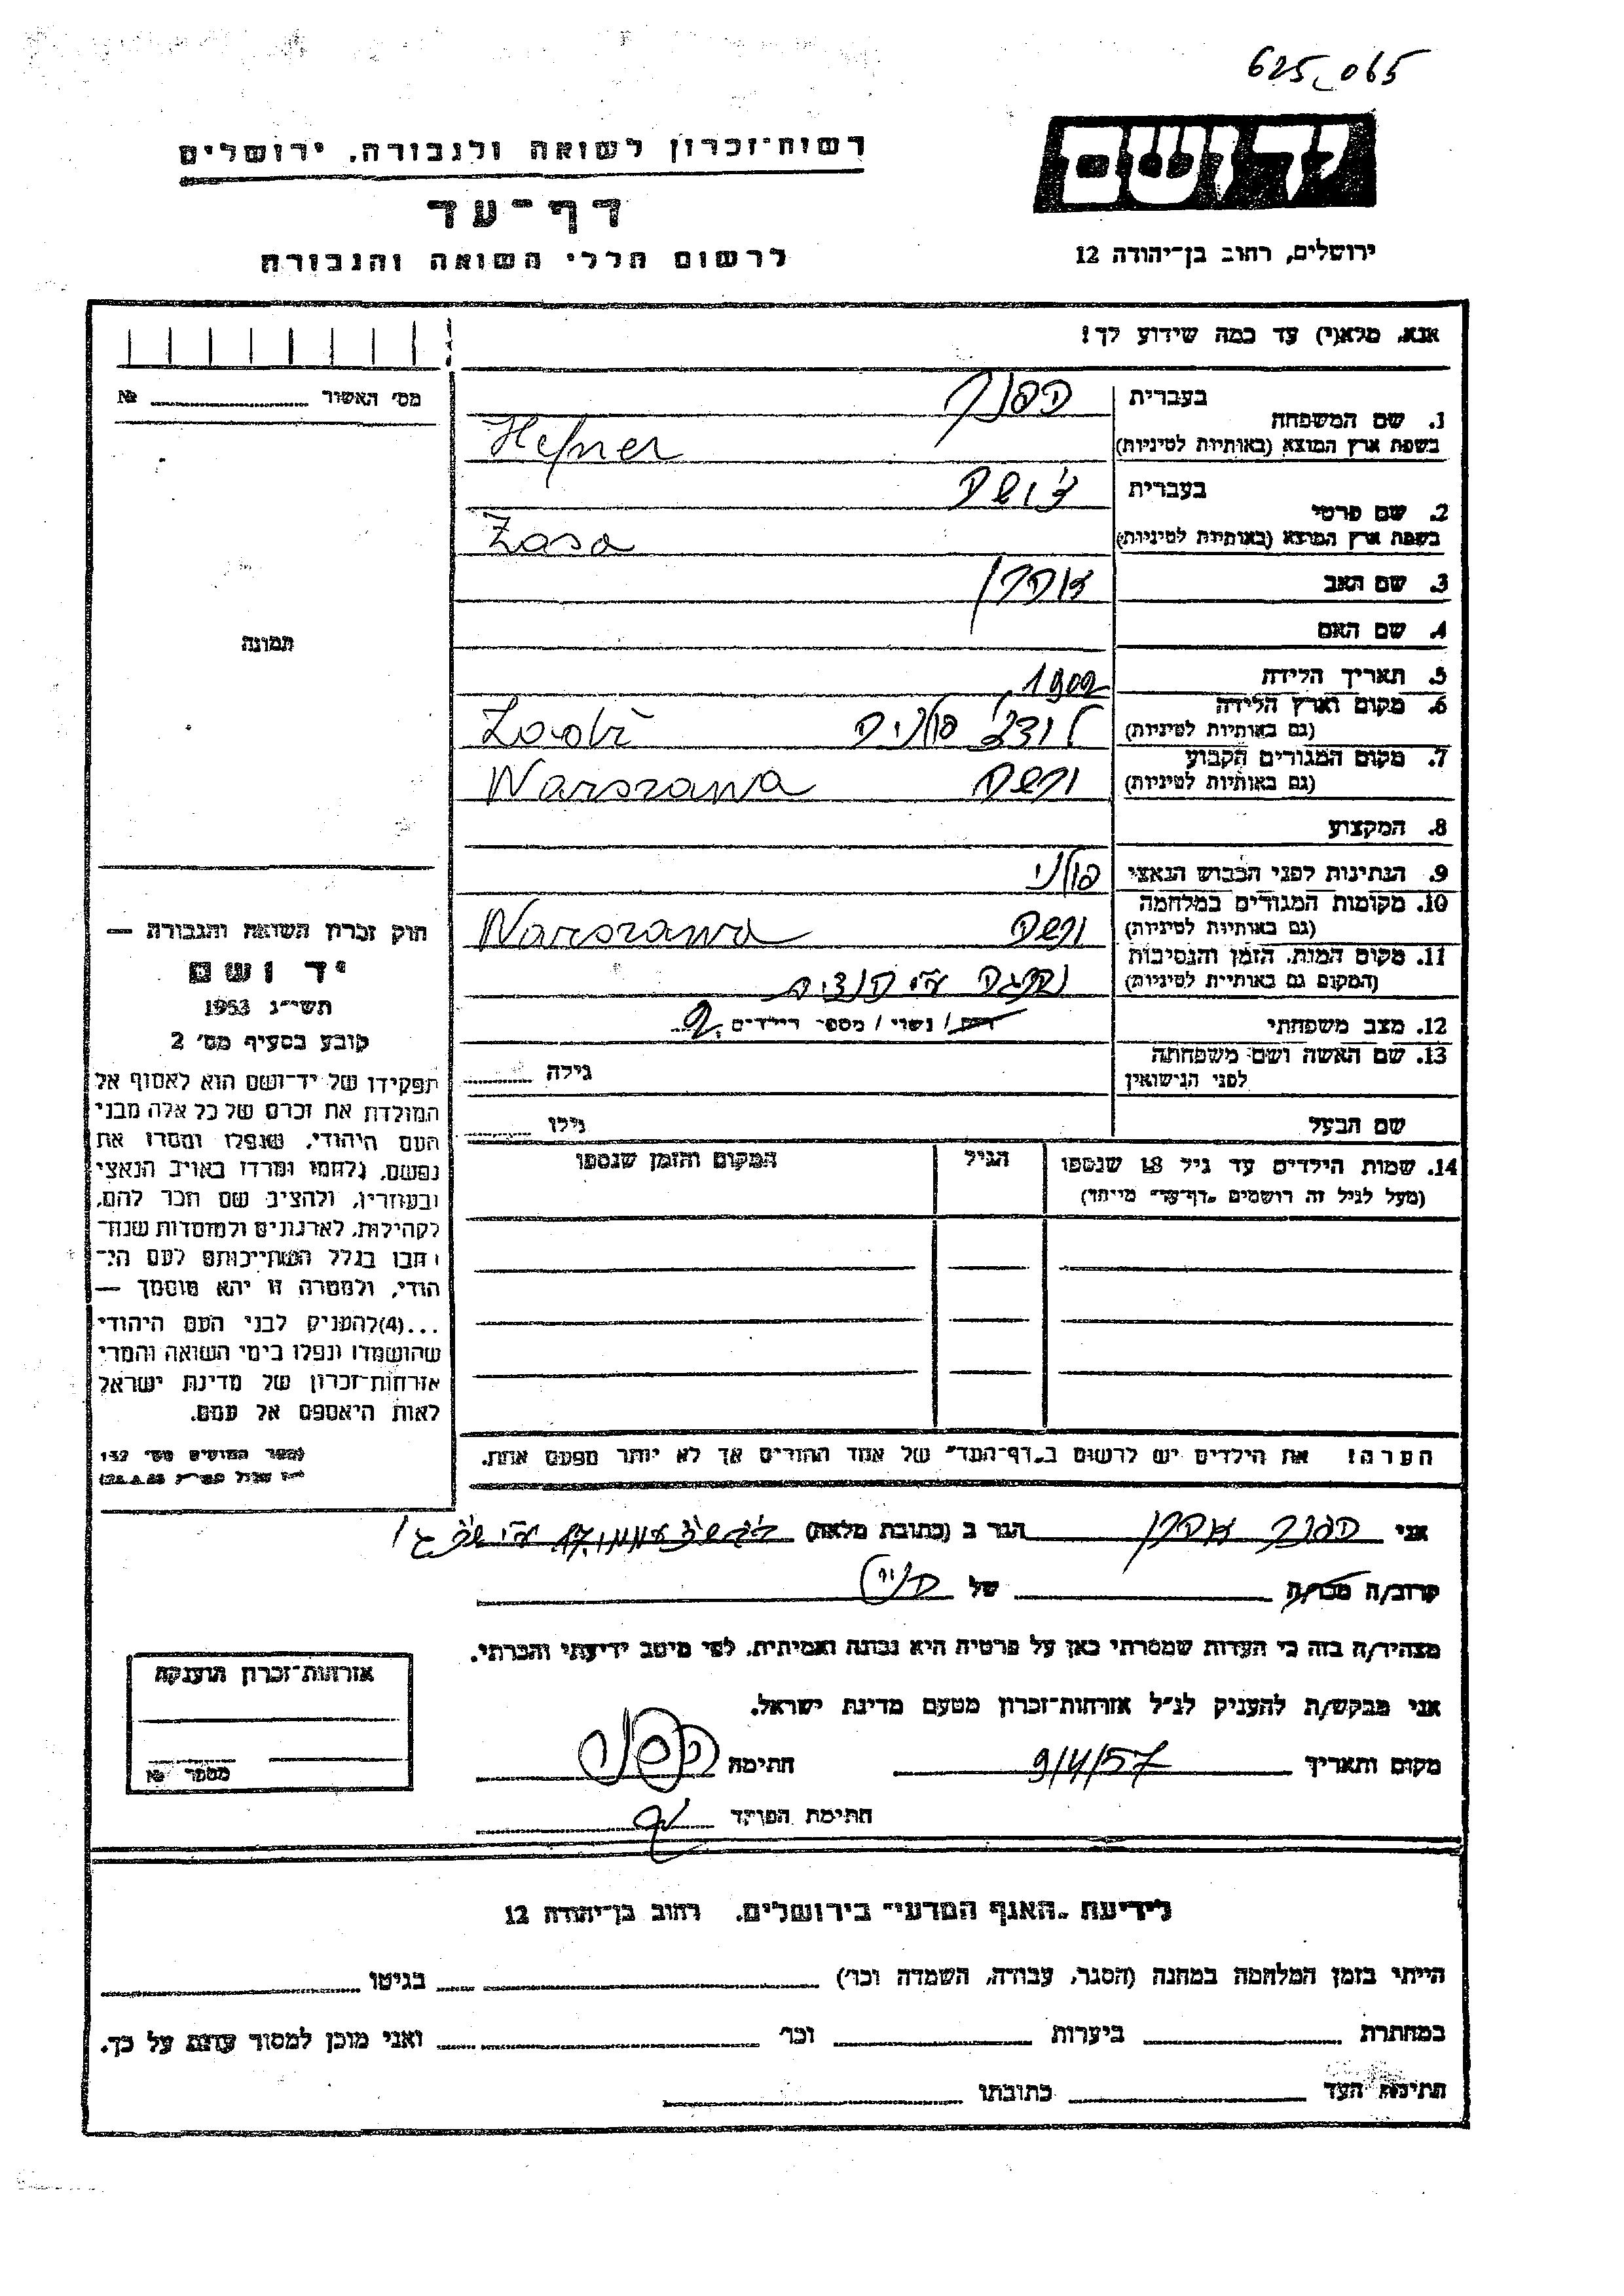 625_065
רשות־זכרון לשואה ולגבורה, ירושלים
יד ושם
דף־עד
לרשום חללי השואה והגבורה
ירושלים, רחוב בן־יהודה 12
אנא, מלא(י) עד כמה שידוע לך!
מס׳ האשור № 
1. שם המשפחה
בעברית הפנר
בשפת ארץ המוצא (באותיות לטיניות) Hefner
2. שם פרטי
בעברית
בשפת ארץ המוצא (באותיות לטיניות)
3. שם האב אהרן
4. שם האם
תמונה
5. תאריך הלידה 1902
6. מקום וארץ הלידה
(גם באותיות לטיניות) לודז׳ פולניה
7. מקום המגורים הקבוע
(גם באותיות לטיניות) ורשה Warszawa
8. המקצוע
9. הנתינות לפני הכבוש הנאצי פולני
10. מקומות המגורים במלחמה
(גם באותיות לטיניות) ורשה Warszawa
11. מקום המות, הזמן והנסיבות
(המקום גם באותיות לטיניות) נהרגה ע״י הנאצים
12. מצב משפחתי רווק / נשוי / מספר הילדים 2
13. שם האשה ושם משפחתה
לפני הנישואין גילה
שם הבעל גילו
14. שמות הילדים עד גיל 18 שנספו
(מעל לגיל זה רושמים „דף־עד״ מיוחד)
הגיל
המקום והזמן שנספו
הערה! את הילדים יש לרשום ב„דף־העד״ של אחד ההורים אך לא יותר מפעם אחת.
חוק זכרון השואה והגבורה —
יד ושם
תשי״ג 1953
קובע בסעיף מס׳ 2
תפקידו של יד־ושם הוא לאסוף אל
המולדת את זכרם של כל אלה מבני
העם היהודי, שנפלו ומסרו את
נפשם, נלחמו ומרדו באויב הנאצי
ובעוזריו, ולהציב שם וזכר להם,
לקהילות, לארגונים ולמוסדות שנח־
רבו בגלל השתייכותם לעם הי־
הודי, ולמטרה זו יהא מוסמך —
...(4)להעניק לבני העם היהודי
שהושמדו ונפלו בימי השואה והמרי
אזרחות־זכרון של מדינת ישראל
לאות היאספם אל עמם.
(ספר החוקים מס׳ 132
אני אהרן הגר ב (כתובת מלאה)
קרוב/ה מכר/ה של
מצהיר/ה בזה כי העדות שמסרתי כאן על פרטיה היא נכונה ואמיתית, לפי מיטב ידיעתי והכרתי.
אני מבקש/ת להעניק לנ״ל אזרחות־זכרון מטעם מדינת ישראל.
מקום ותאריך 9/4/57 חתימה הפנר
חתימת הפוקד
אזרחות־זכרון הוענקה
מספר №
לידיעת „האגף המדעי״ בירושלים, רחוב בן־יהודה 12
הייתי בזמן המלחמה במחנה (הסגר, עבודה, השמדה וכו׳) בגיטו
במחתרת ביערות וכו׳ ואני מוכן למסור עדות על כך.
חתימת העד כתובתו